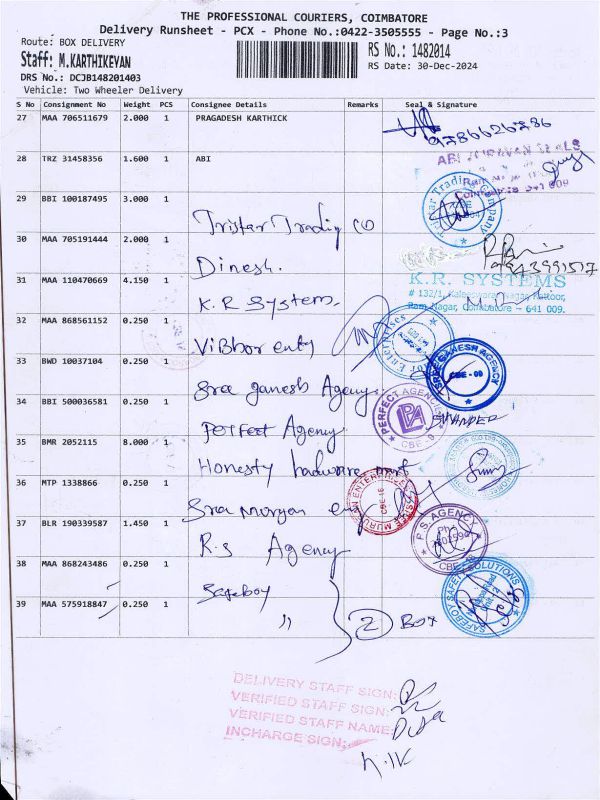 THE PROFESSIONAL COURIERS, COIMBATORE
Delivery Runsheet - PCX - Phone No.:0422-3505555 - Page No.:3
Route: BOX DELIVERY
Staff: M.KARTHIKEYAN
RS No.: 1482014
DRS No.: DCJB148201403
RS Date: 30-Dec-2024
Vehicle: Two Wheeler Delivery
S No Consignment No Weight PCS Consignee Details Remarks Seal & Signature
27 MAA 706511679 2.000 1 PRAGADESH KARTHICK
28 TRZ 31458356 1.600 1 ABI
29 BBI 100187495 3.000 1
Tristar Trading Co
30 MAA 705191444 2.000 1
Dinesh.
31 MAA 110470669 4.150 1
K.R Systems.
K.R. SYSTEMS
# 132/1, Kaleeswara Nagar, Kattoor,
Ram Nagar, Coimbatore - 641 009.
32 MAA 868561152 0.250 1
Vibhor enty
33 BWD 10037104 0.250 1
Sree ganesh Agency
SREE GANESH AGENCY
CBE - 09
34 BBI 500036581 0.250 1
Perfect Agency
PERFECT AGENCY
CBE - 9
35 BMR 2052115 8.000 1
Honesty hardware mart
36 MTP 1338866 0.250 1
Sree Murugan ent
37 BLR 190339587 1.450 1
R.S Agency
P.S. AGENCY
CBE - 9
38 MAA 868243486 0.250 1
Safeboy
SAFEBOY SAFETY SOLUTIONS
39 MAA 575918847 0.250 1
"
2 Box
DELIVERY STAFF SIGN:
VERIFIED STAFF SIGN:
VERIFIED STAFF NAME:
INCHARGE SIGN: